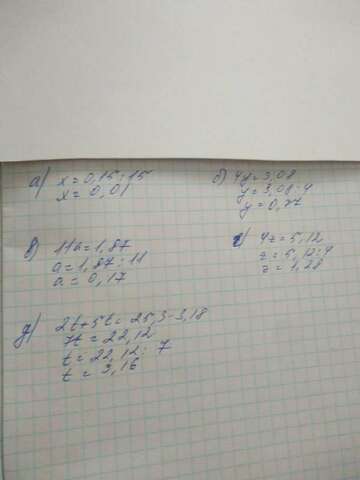 а) x = 0,15 : 15
x = 0,01
б) 4y = 3,08
y = 3,08 : 4
y = 0,77
в) 11a = 1,87
a = 1,87 : 11
a = 0,17
г) 4z = 5,12
z = 5,12 : 4
z = 1,28
д) 2t + 5t = 25,3 - 3,18
7t = 22,12
t = 22,12 : 7
t = 3,16